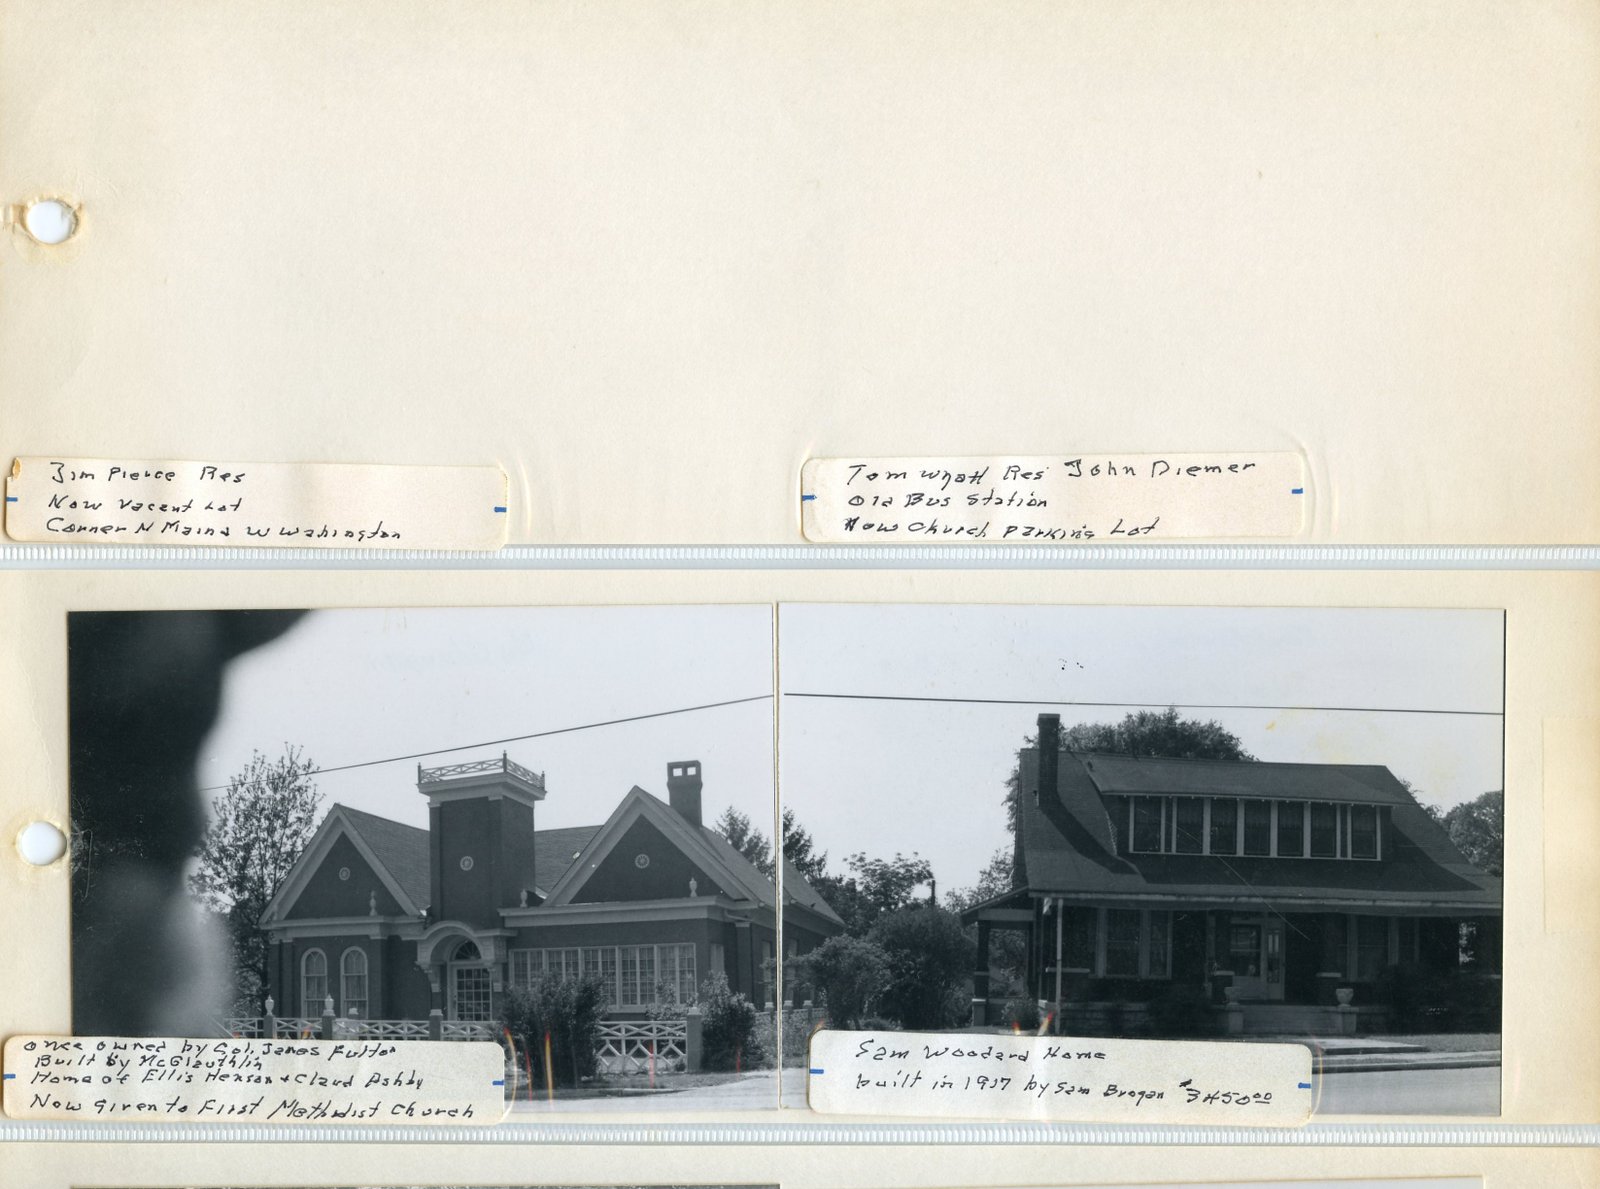 Jim Pierce Res
Now Vacant Lot
Corner N Maind W Wahington
Tom Wyatt Res John Diemer
Old Bus Station
Now Church Parking Lot
Once owned by Col. James Fulton
Built by McGlauthlin
Home of Ellis Henson + Claud Ashby
Now given to First Methodist Church
Sam Woodard Home
built in 1917 by Sam Brogan $3450.00